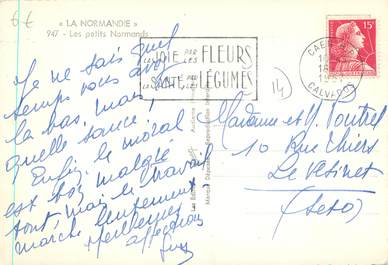 6€
« LA NORMANDIE »
947 - Les petits Normands
LA JOIE PAR LES FLEURS
LA SANTÉ PAR LES LÉGUMES
CALVADOS
15F
14
Je ne sais quel
temps vous avez
là bas, mais
quelle sauce!
Enfin, le moral
est bon, malgré
tout, mais le travail
marche lentement.
Meilleures
affections
Madame et M. Poutrel
10 Rue Thiers
Le Vésinet
(S et O)